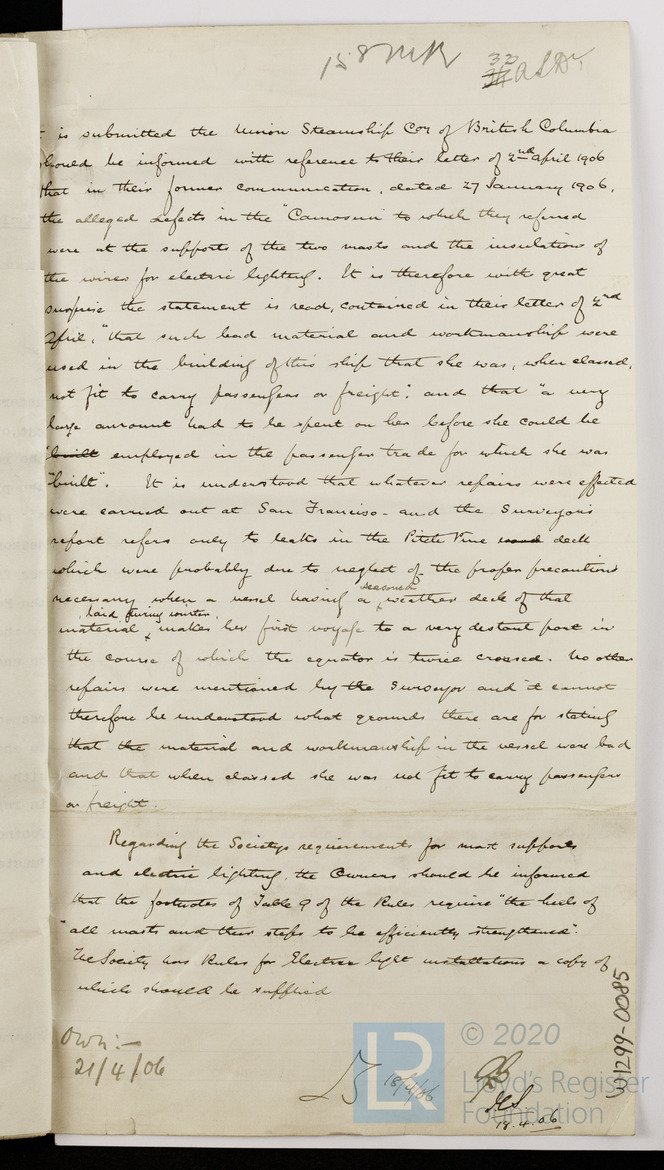 158
33
is submitted the Union Steamship Coy of British Columbia
should be informed with reference to their letter of 2nd April 1906
that in their former communication, dated 27 January 1906,
the alleged defects in the "Camosun" to which they referred
were at the supports of the two masts and the insulation of
the wires for electric lighting. It is therefore with great
surprise the statement is read, contained in their letter of 2nd
April, "that such bad material and workmanship were
used in the building of this ship that she was, when classed,
not fit to carry passengers or freight". and that "a very
large amount had to be spent on her before she could be
"built employed in the passenger trade for which she was
"built". It is understood that whatever repairs were effected
were carried out at San Francisco - and the Surveyor's
report refers only to leaks in the Pitch Pine deck
which were probably due to neglect of the proper precautions
seasoned
necessary when a vessel having a weather deck of that
laid during winter,
material makes her first voyage to a very distant port in
the course of which the equator is twice crossed. No other
repairs were mentioned by the Surveyor and it cannot
therefore be understood what grounds there are for stating
that the material and workmanship in the vessel were bad
and that when classed she was not fit to carry passengers
or freight.
Regarding the Society's requirements for mast supports
and electric lighting, the Owners should be informed
that the footnotes of Table 9 of the Rules require "the heels of
"all masts and their steps to be efficiently strengthened".
The Society has Rules for Electric light installations a copy of
which should be supplied
Own:-
21/4/06
18/4/06
18.4.06
W1299-0085
LR
© 2020
Lloyd's Register
Foundation